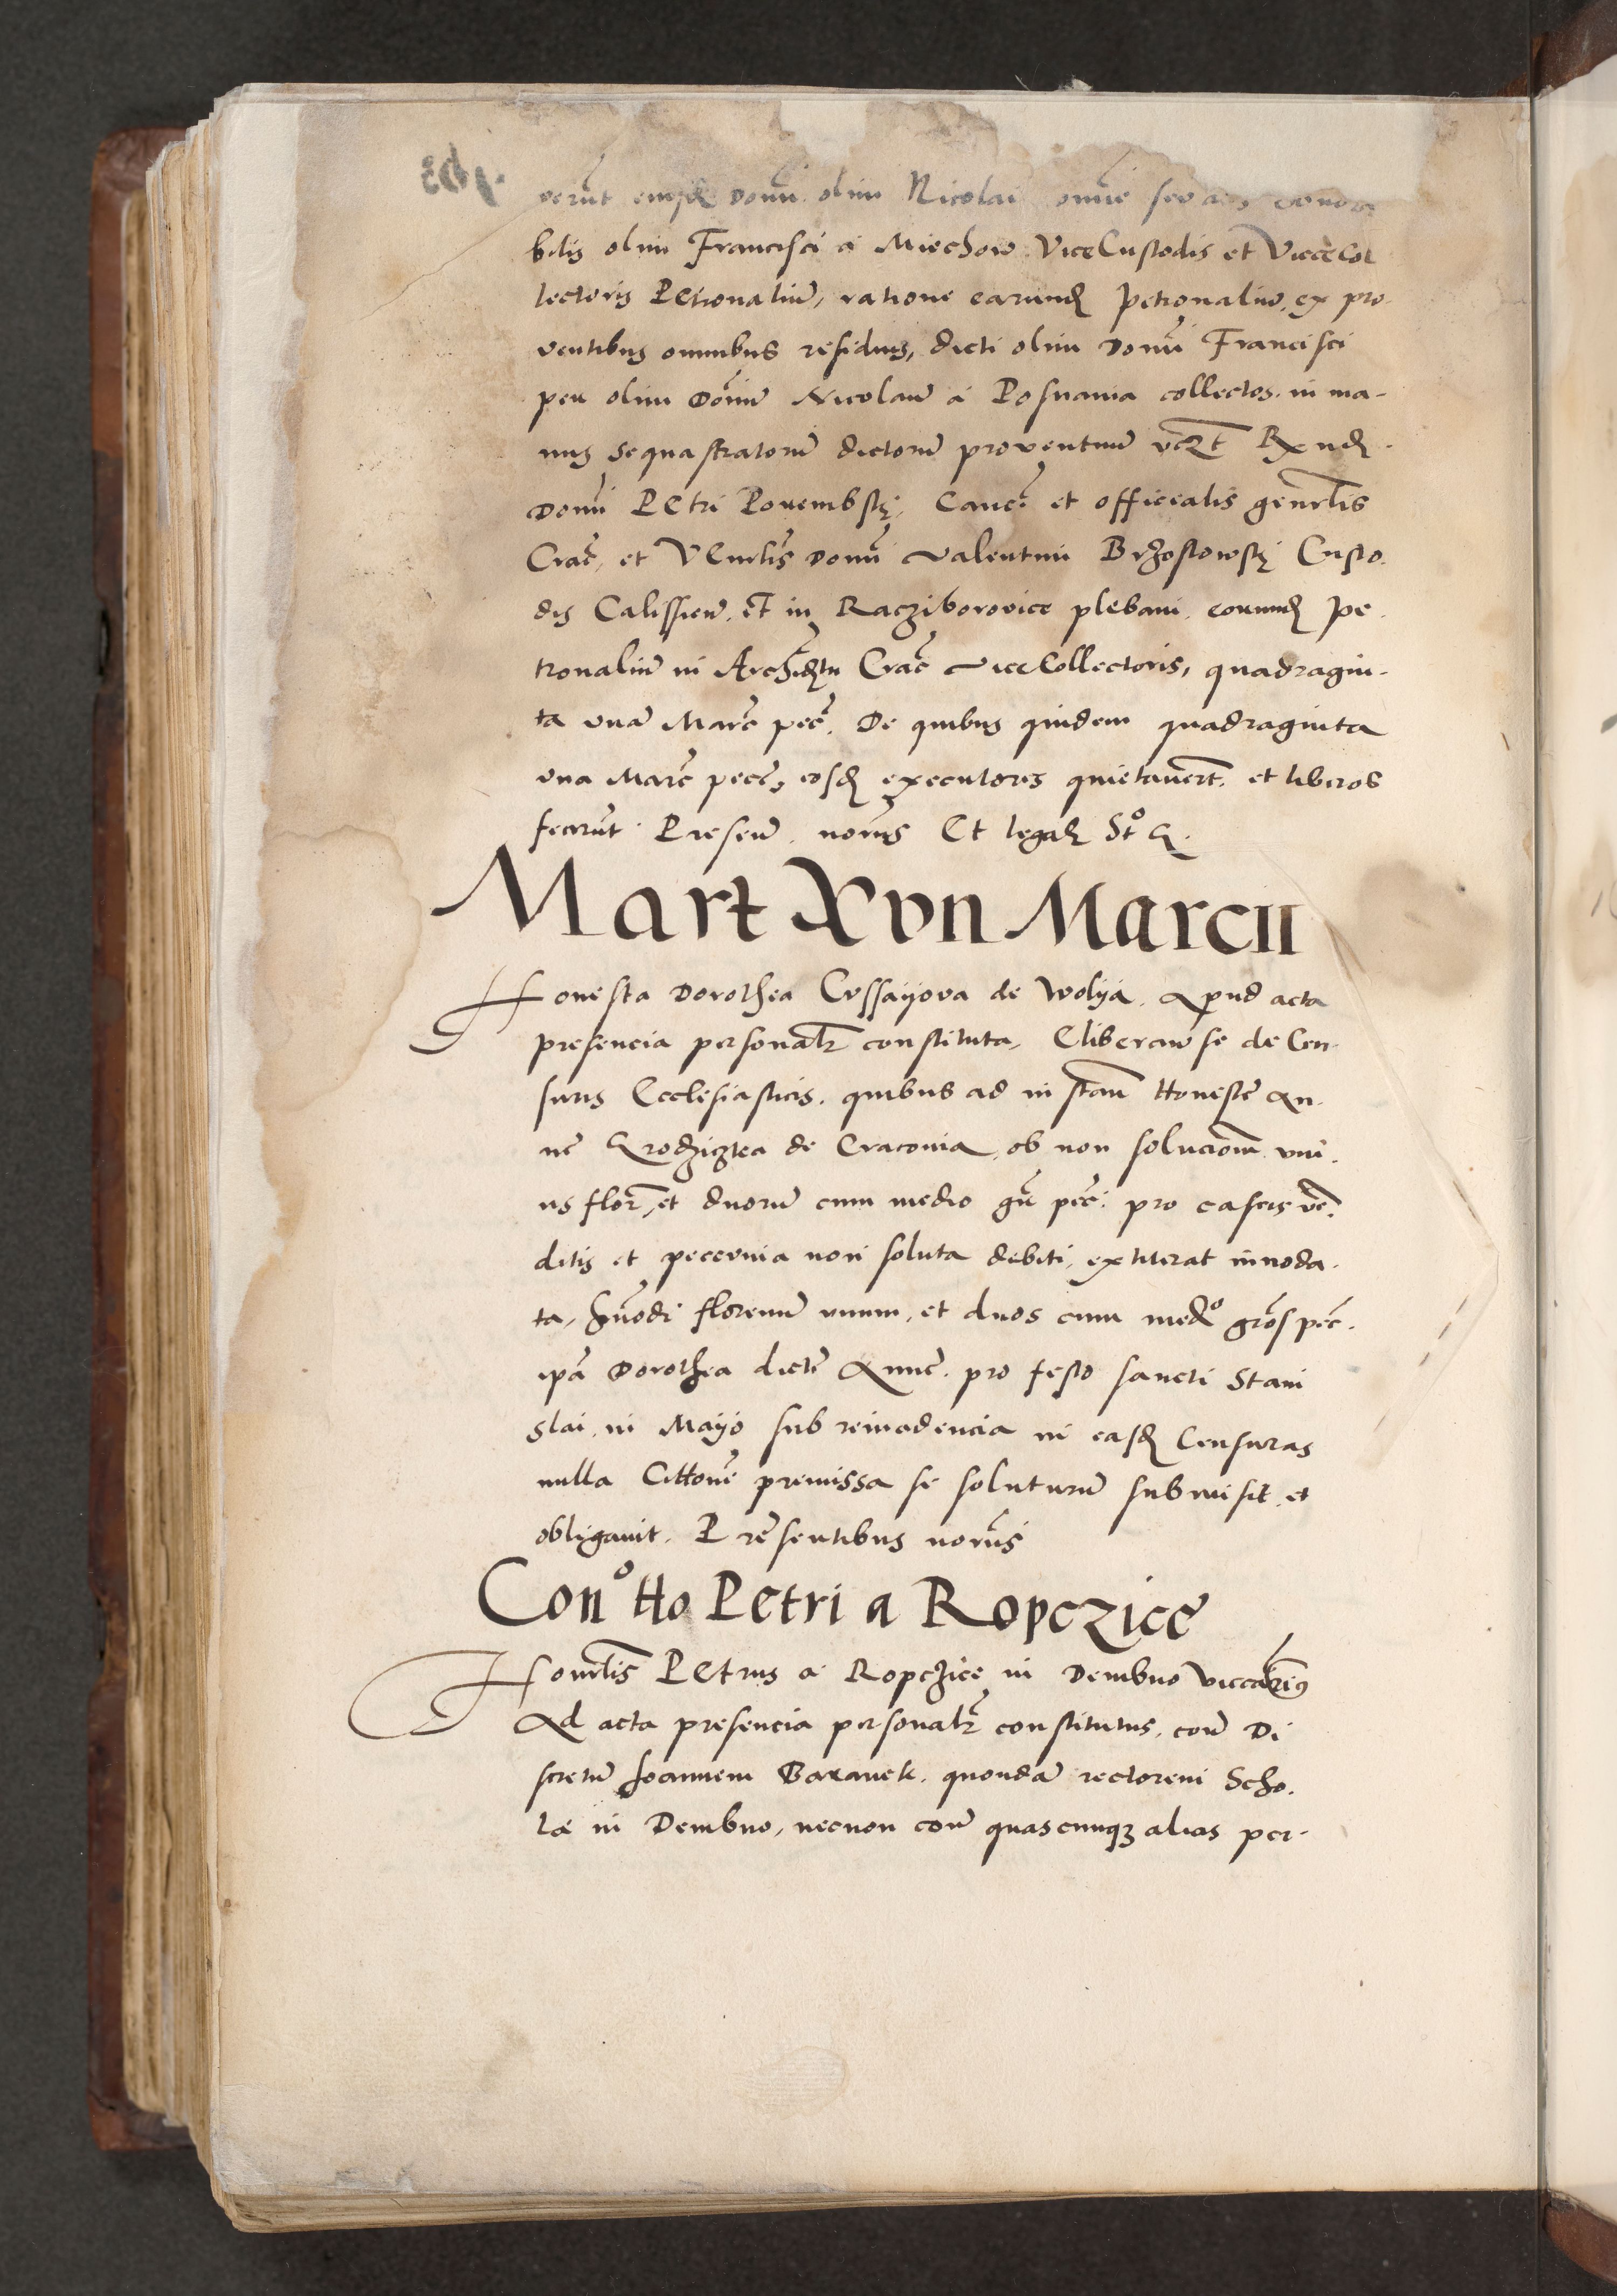 verūt eiusdē domī olim Nicolai omīe seu
bilis olim Francisci a Miechow ViceCustodis et ViceCol
lectoris PEtronaliū, ratione earundē Petronaliū, ex pro-
ventibus omnibus residuis, dicti olim Domī Francisci
peu olim Domīū Nicolaū a Posnania collectos. in ma-
nus sequastratorū dictorū proventuū vczt Rxndē
Domī PEtri Porembskj, Canc̄. et officialis genrlis
Crac̄, et VEnrlis Domī Valentini Brzostowskj Custo-
dis Calissieñ. et in Racziborovice plebani. eorundē Pe-
tronaliū in Archidtu Crac̄ ViceCollectoris, quadragin-
ta unā Marc̄ pec̄. De quibus quidem quadraginta
una Marc̄ pec̄, eosdē executores quietavert. et liberos
fecerūt. Presen̄. norijs Et legalr Sto G.
Mart XVII Marcii
Honesta Dorothea Cvssayova de Wolya. Apud acta
presencia personalr constituta, Eliberan̄ se de Cen-
suris Ecclesiasticis. quibus ad in stan̄ Honeste An-
ne Grodzicztea de Cracovia, ob non solucionē uni-
us flor, et duorū cum medio gr̄ pec̄. pro caseis ven̄-
ditis et peceunia non soluta debiti, extiterat innoda-
ta, hmōdi florenū unum, et duos cum medo gros pec̄.
ipā Dorothea dicte Anne. pro festo sancti Stani
slai. in Mayo sub reincidencia in easdē Censuras
nulla Cittone premissa se soluturū submisit. et
obligavit. Presentibus norijs
Cono Ho Petri a Ropczice
Honrlis PEtrus a Ropczice in Dembno Viccarius
Ad acta presencia personalr constitutus, con̄ Di
scretū Joannem Baranek. quondā rectorem Scho-
læ in Dembno, necnon con̄ quascunq3 alias per-